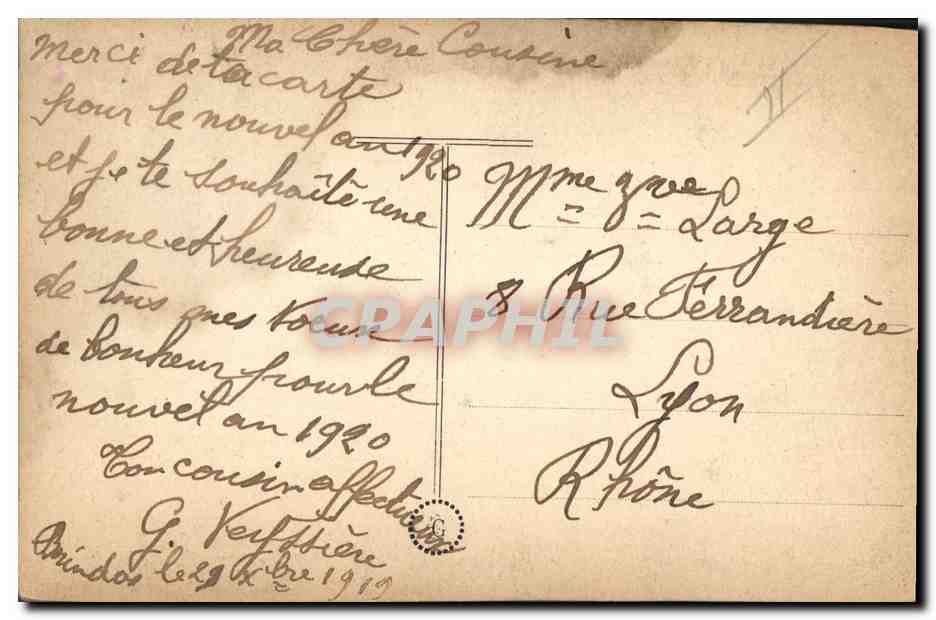 Ma Chère Cousine
Merci de ta carte
pour le nouvel an 1920
et je te souhaite une
bonne et heureuse
de tous mes voeux
de bonheur pour le
nouvel an 1920
Ton cousin affectueux
G. Veyssière
le 29 Xbre 1919
Mme Vve Large
8 Rue Ferrandière
Lyon
Rhône
G
CPAPHIL